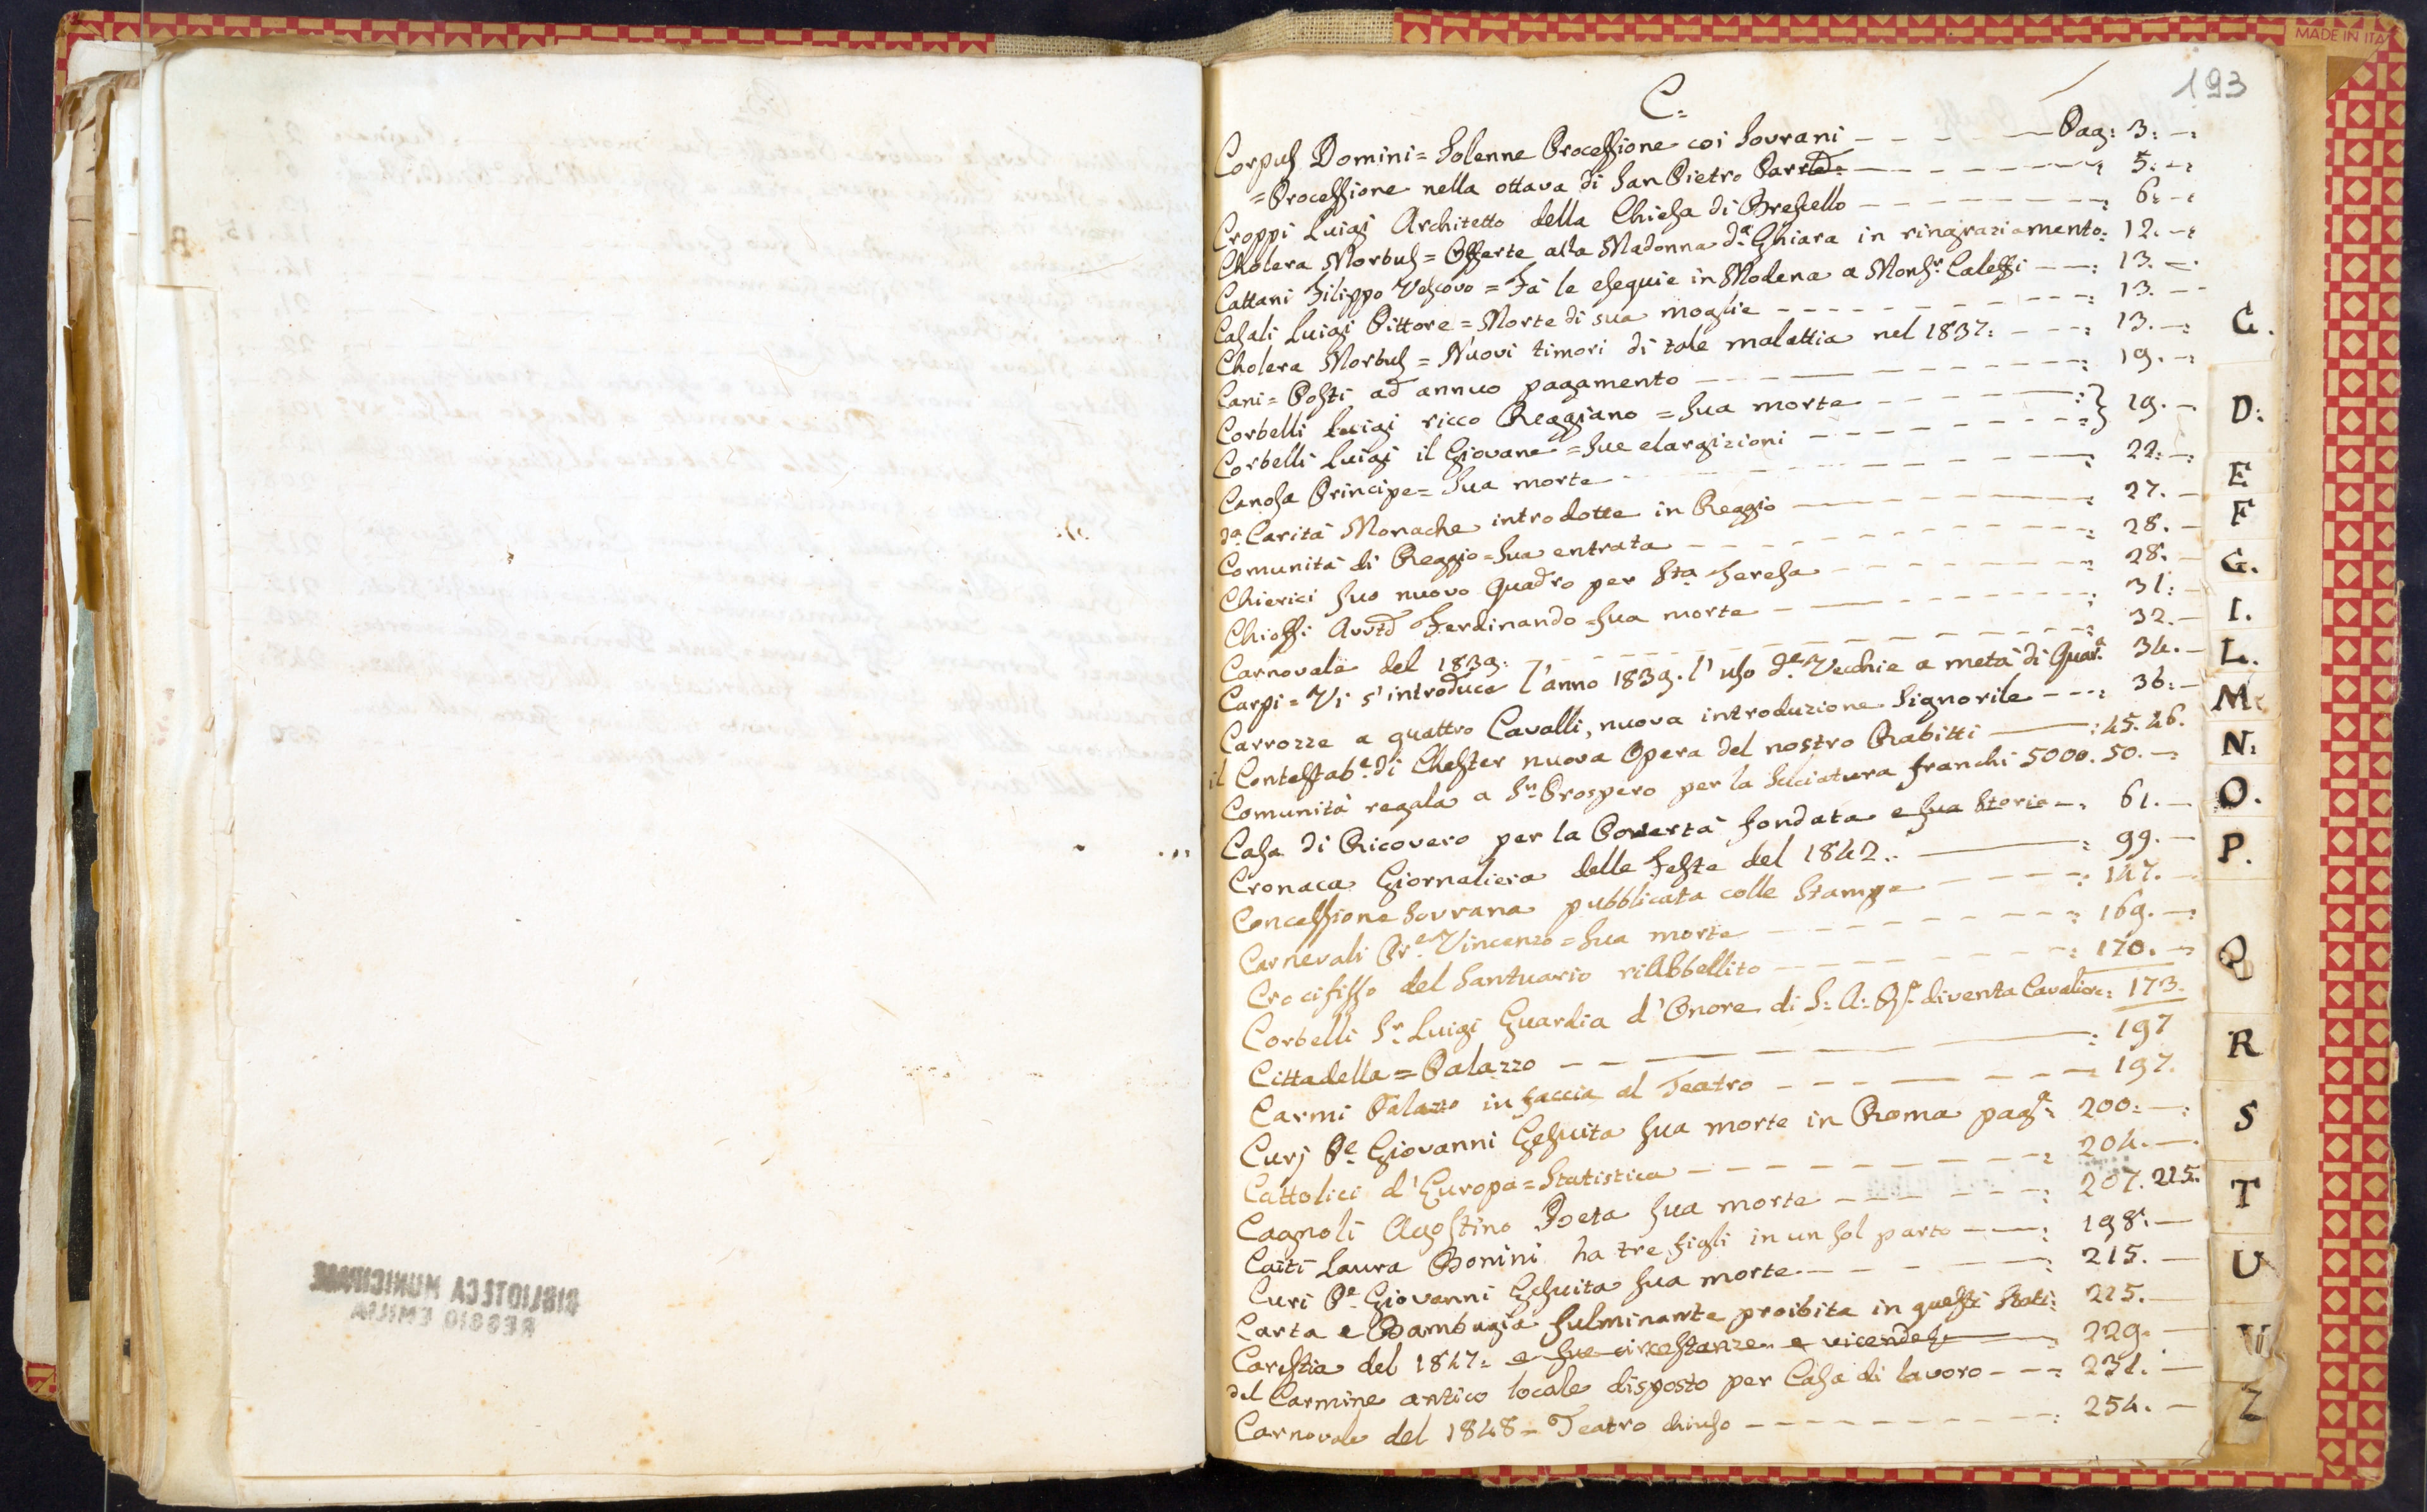 MADE IN ITA
193
C=
Corpus Domini = Solenne Processione coi Sovrani - - - - Pag: 3: -:
= Processione nella ottava di San Pietro - - - - : 5: -:
Croppi Luigi Architetto della Chiesa di Brescello - - - - : 6: -:
Cholera Morbus = Offerte alla Madonna d.a Ghiara in ringraziamento: 12. -:
Cattani Filippo Vescovo = Fà le esequie in Modena a Mons.r Caleffi - - : 13. -.
Casali Luigi Pittore = Morte di sua moglie - - - - : 13. - -
Cholera Morbus = Nuovi timori di tale malattia nel 1837: - - - : 13. -:
Cani = Posti ad annuo pagamento - - - - : 19. -:
Corbelli Luigi ricco Reggiano = Sua morte - - - - : } 19. -
Corbelli Luigi il Giovane = Sue elargizioni - - - - : }
Canosa Principe = Sua morte - - - - : 22: -:
d.a Carità Monache introdotte in Reggio - - - - : 27. -
Comunità di Reggio = Sua entrata - - - - : 28. -
Chierici suo nuovo Quadro per S.ta Teresa - - - - : 28. -
Chioffi Avv.to Ferdinando = Sua morte - - - - : 31: -
Carnovale del 1839: - - - - : 32. -
Carpi = Vi s'introduce l'anno 1839. l'uso d.e Vecchie a metà di Quar.a 34. -
Carrozze a quattro Cavalli, nuova introduzione Signorile - - - : 36: -
il Contestab.e di Chester nuova Opera del nostro Rabitti - - : 45. 46.
Comunità regala a S.n Prospero per la Selciatura franchi 5000. 50. -:
Casa di Ricovero per la Povertà fondata e sua Storia - : 61. -
Cronaca Giornaliera delle Feste del 1842.. - - : 99. -
Concessione Sovrana pubblicata colle Stampe - - - - : 147. -
Carnevali Vincenzo = Sua morte - - - - : 169. -:
Crocifisso del Santuario riAbbellito - - - - : 170. -:
Corbelli S.r Luigi Guardia d'Onore di S: A: R.e diventa Cavaliere: 173.
Cittadella = Palazzo - - - - : 197
Carmi Palazzo in faccia al Teatro - - - - : 197.
Curj P.e Giovanni Gesuita sua morte in Roma pag.e: 200: -:
Cattolici d'Europa = Statistica - - - - : 204. -.
Cagnoli Agostino Poeta sua morte - - - - : 207. 215.
Caiti Laura Bonini ha tre figli in un sol parto - - : 198. -
Curi P.e Giovanni Gesuita sua morte - - - - : 215. -
Carta e Bambagia fulminante proibita in questi Stati: 225. -
Carestia del 1847: e sue circostanze e vicende - - : 229. -
del Carmine antico locale disposto per Casa di lavoro - - - : 231. -
Carnovale del 1848 = Teatro chiuso - - - - : 254. -
C.
D:
E
F
G.
I.
L.
M
N:
O.
P.
Q
R
S
T
U
V
Z
BIBLIOTECA MUNICIPALE
REGGIO EMILIA